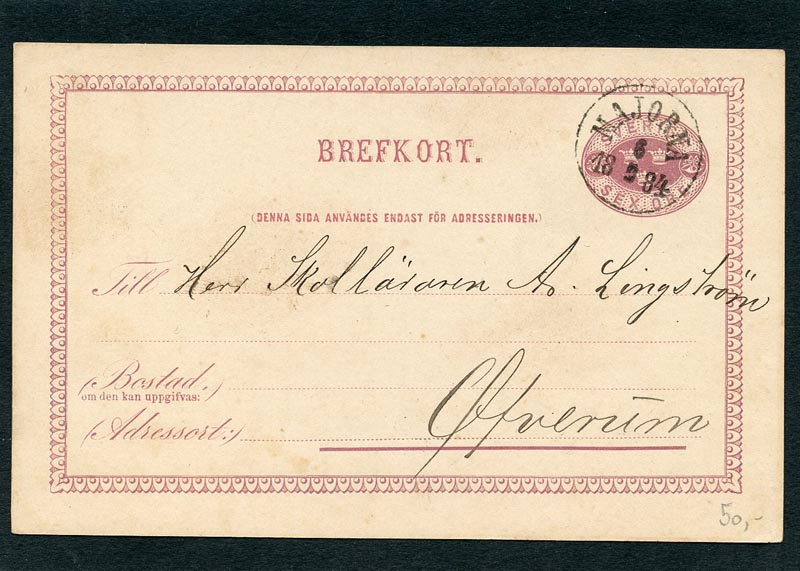 BREFKORT.
MAJORNA
6
18 5 84
SVERIGE
SEX ÖRE
(DENNA SIDA ANVÄNDES ENDAST FÖR ADRESSERINGEN.)
Till Herr Skolläraren A. Lingström
(Bostad,)
om den kan uppgifvas:
(Adressort:) Øfverum
50,-